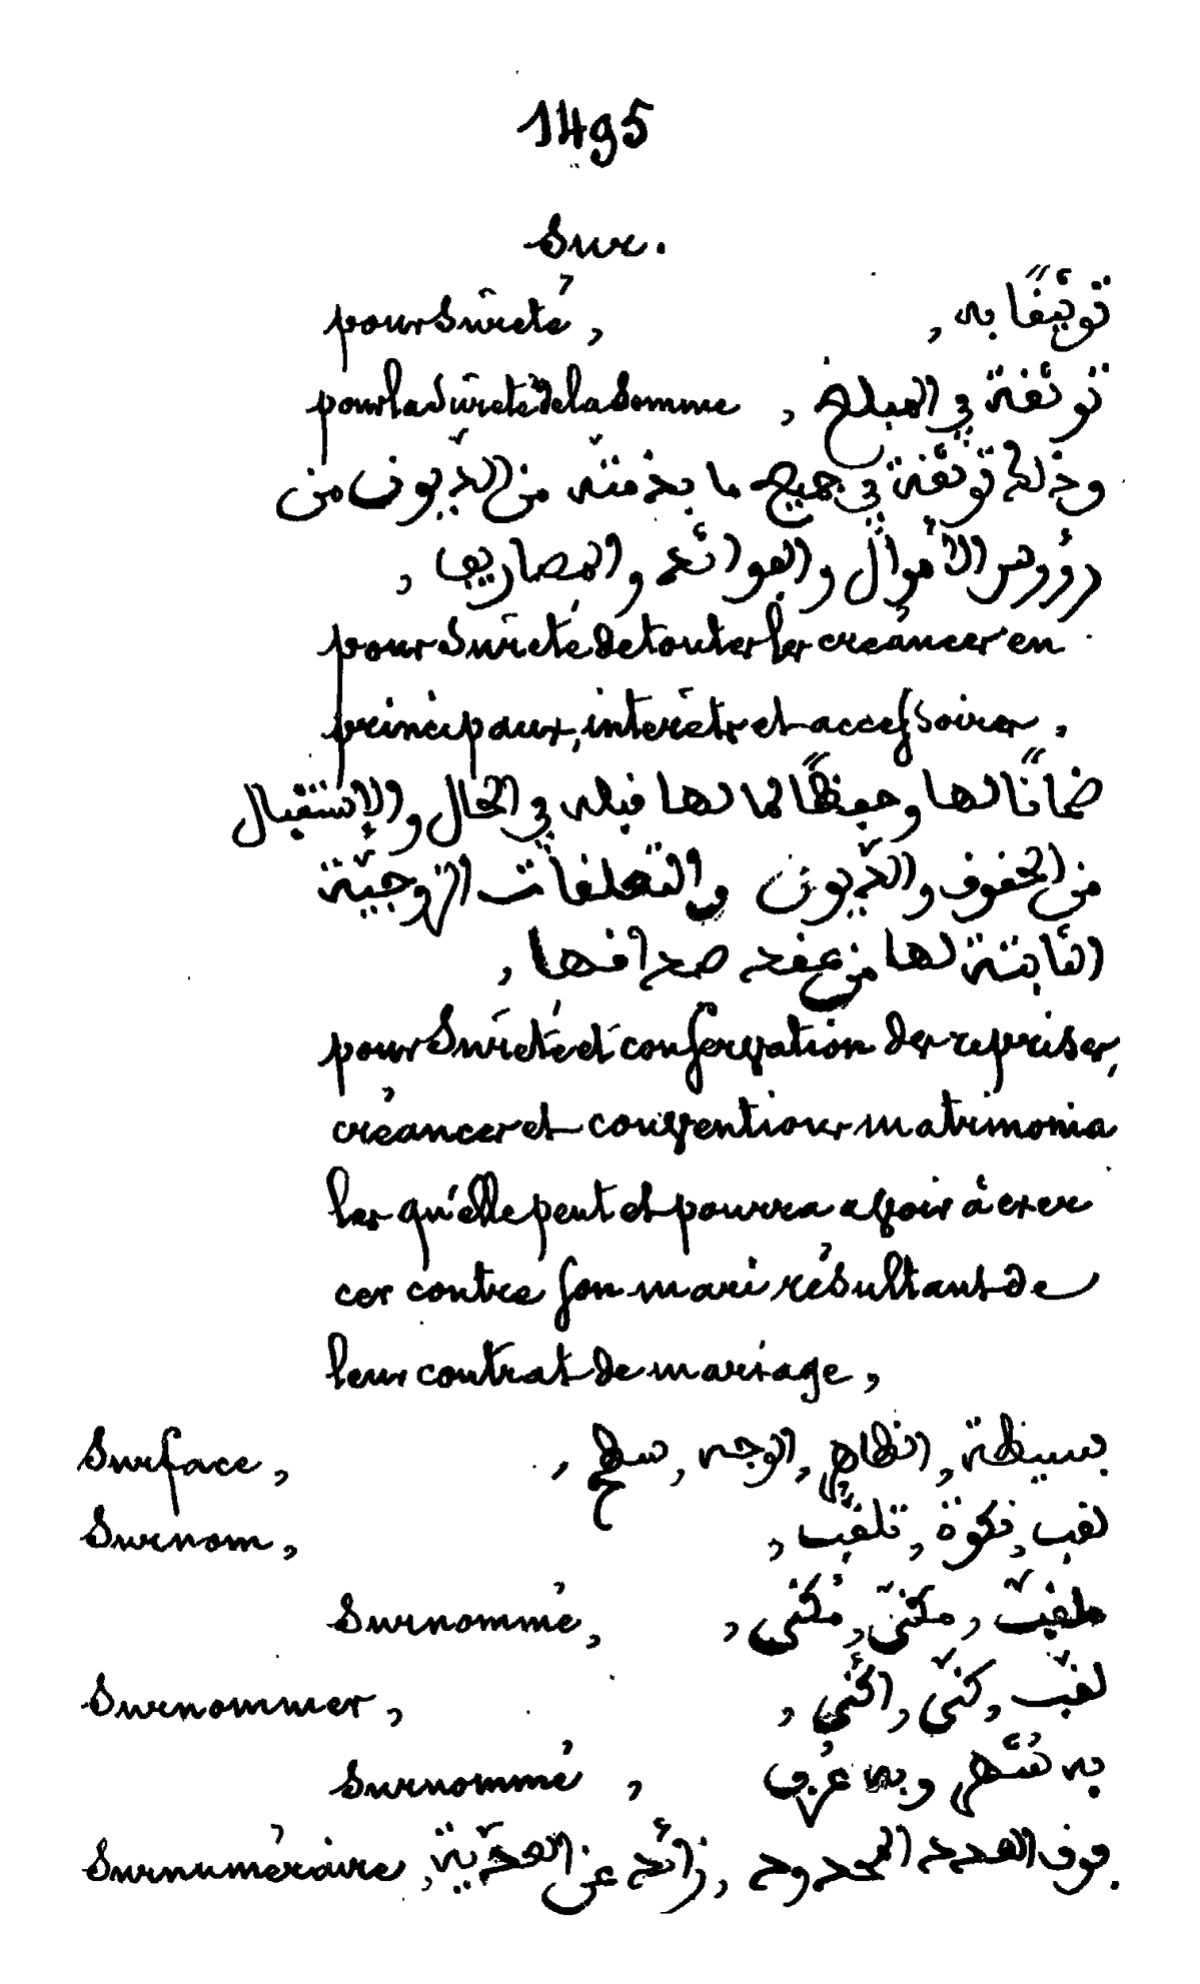 1495
Sur.
pour Sûreté, توثيقًا به,
pour la Sûreté de la Somme, توثقة في المبلغ
وذلك توثقة في جميع ما بذمته من الديّون من
رؤوس الأموال والفوائد والمصاريف,
pour Sûreté de toutes les créances en
principaux, interêts et accessoires,
ضمانًا لها وحفظًا لما لها قبله في الحال والإستقبال
من الحقوق والديّون والتعلقات الزّوجيّة
الثابتة لها من عقد صداقها,
pour Sûreté et conservation des reprises,
créances et conventions matrimonia
les qu'elle peut et pourra avoir à exer
cer contre son mari résultant de
leur contrat de mariage,
Surface, بسيطة, الظاهر, الوجه, سطح,
Surnom, لقب, نكوة, تلقّب,
Surnommé, ملقّب, مكنّى, مُكنى,
Surnommer, لقّب, كنّى, أكنى,
Surnommé, به شُهر وبه عُرف
Surnuméraire, فوق العدد المحدود, زائد عن العدّية.